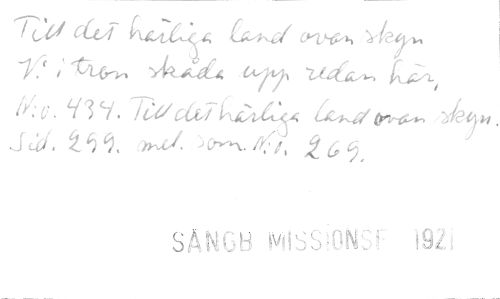 Till det härliga land ovan skyn
Vi i tron skåda upp redan här,
N:o. 434. Till det härliga land ovan skyn.
Sid. 299. mel. som N:o. 269.
SÅNGB MISSIONSF 1921